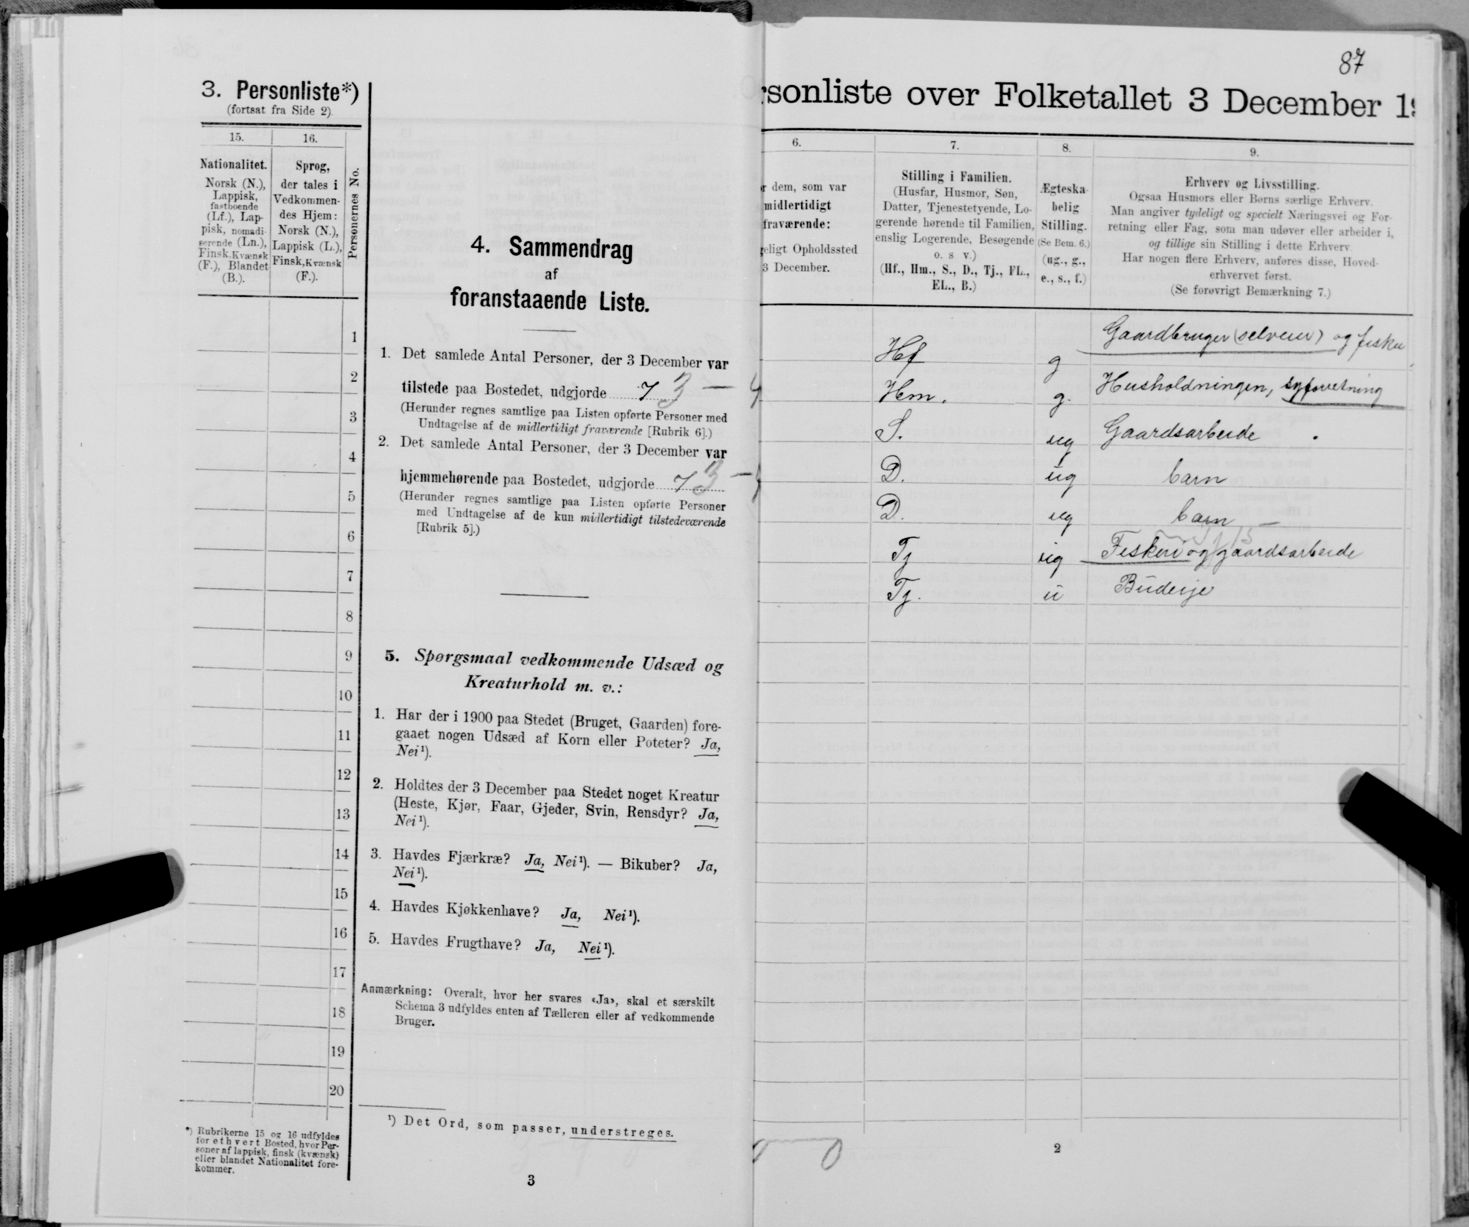 3. Personliste*)
(fortsat fra Side 2)
15.
16.
Nationalitet.
Norsk (N.),
Lappisk,
fastboende
(Lf.), Lap-
pisk, nomadi-
serende (Ln.),
Finsk, Kvænsk
(F.), Blandet
(B.).
Sprog,
der tales i
Vedkommen-
des Hjem:
Norsk (N.),
Lappisk (L.),
Finsk, Kvænsk
(F.).
Personernes No.
1
2
3
4
5
6
7
8
9
10
11
12
13
14
15
16
17
18
19
20
*) Rubrikerne 15 og 16 udfyldes
for ethvert Bosted, hvor Per-
soner af lappisk, finsk (kvænsk)
eller blandet Nationalitet fore-
kommer.
4. Sammendrag
af
foranstaaende Liste.
1. Det samlede Antal Personer, der 3 December var
tilstede paa Bostedet, udgjorde 7 3 — 4
(Herunder regnes samtlige paa Listen opførte Personer med
Undtagelse af de midlertidigt fraværende [Rubrik 6].)
2. Det samlede Antal Personer, der 3 December var
hjemmehørende paa Bostedet, udgjorde 7 3 — 4
(Herunder regnes samtlige paa Listen opførte Personer
med Undtagelse af de kun midlertidigt tilstedeværende
[Rubrik 5].)
5. Spørgsmaal vedkommende Udsæd og
Kreaturhold m. v.:
1. Har der i 1900 paa Stedet (Bruget, Gaarden) fore-
gaaet nogen Udsæd af Korn eller Poteter? Ja,
Nei¹).
2. Holdtes der 3 December paa Stedet noget Kreatur
(Heste, Kjør, Faar, Gjeder, Svin, Rensdyr? Ja,
Nei¹).
3. Havdes Fjærkræ? Ja, Nei¹). — Bikuber? Ja,
Nei¹).
4. Havdes Kjøkkenhave? Ja, Nei¹).
5. Havdes Frugthave? Ja, Nei¹).
Anmærkning: Overalt, hvor her svares «Ja», skal et særskilt
Schema 3 udfyldes enten af Tælleren eller af vedkommende
Bruger.
¹) Det Ord, som passer, understreges.
3
87
rsonliste over Folketallet 3 December 19
6.
7.
8.
9.
r dem, som var
midlertidigt
fraværende:
geligt Opholdssted
3 December.
Stilling i Familien.
(Husfar, Husmor, Søn,
Datter, Tjenestetyende, Lo-
gerende hørende til Familien,
enslig Logerende, Besøgende
o. s v.)
(Hf., Hm., S., D., Tj., FL.,
EL., B.)
Ægteska-
belig
Stilling.
(Se Bem. 6.)
(ug., g.,
e., s., f.)
Erhverv og Livsstilling.
Ogsaa Husmors eller Børns særlige Erhverv.
Man angiver tydeligt og specielt Næringsvei og For-
retning eller Fag, som man udøver eller arbeider i,
og tillige sin Stilling i dette Erhverv
Har nogen flere Erhverv, anføres disse, Hoved-
erhvervet først.
(Se forøvrigt Bemærkning 7.)
Hf g Gaardbruger (selveier) og fisker
Hm. g. Husholdningen, syforretning
S. ug Gaardsarbeide
D. ug barn
D. ug barn —
Tj ug Fiskeri og gaardsarbeide
Tj. u Budeije
2